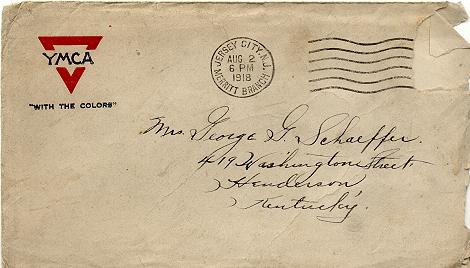 YMCA
"WITH THE COLORS"
JERSEY CITY, N.J.
AUG. 2
6 PM
1918
MERRITT BRANCH
Mrs. George G. Schaeffer.
419 Washington Street
Henderson
Kentucky.